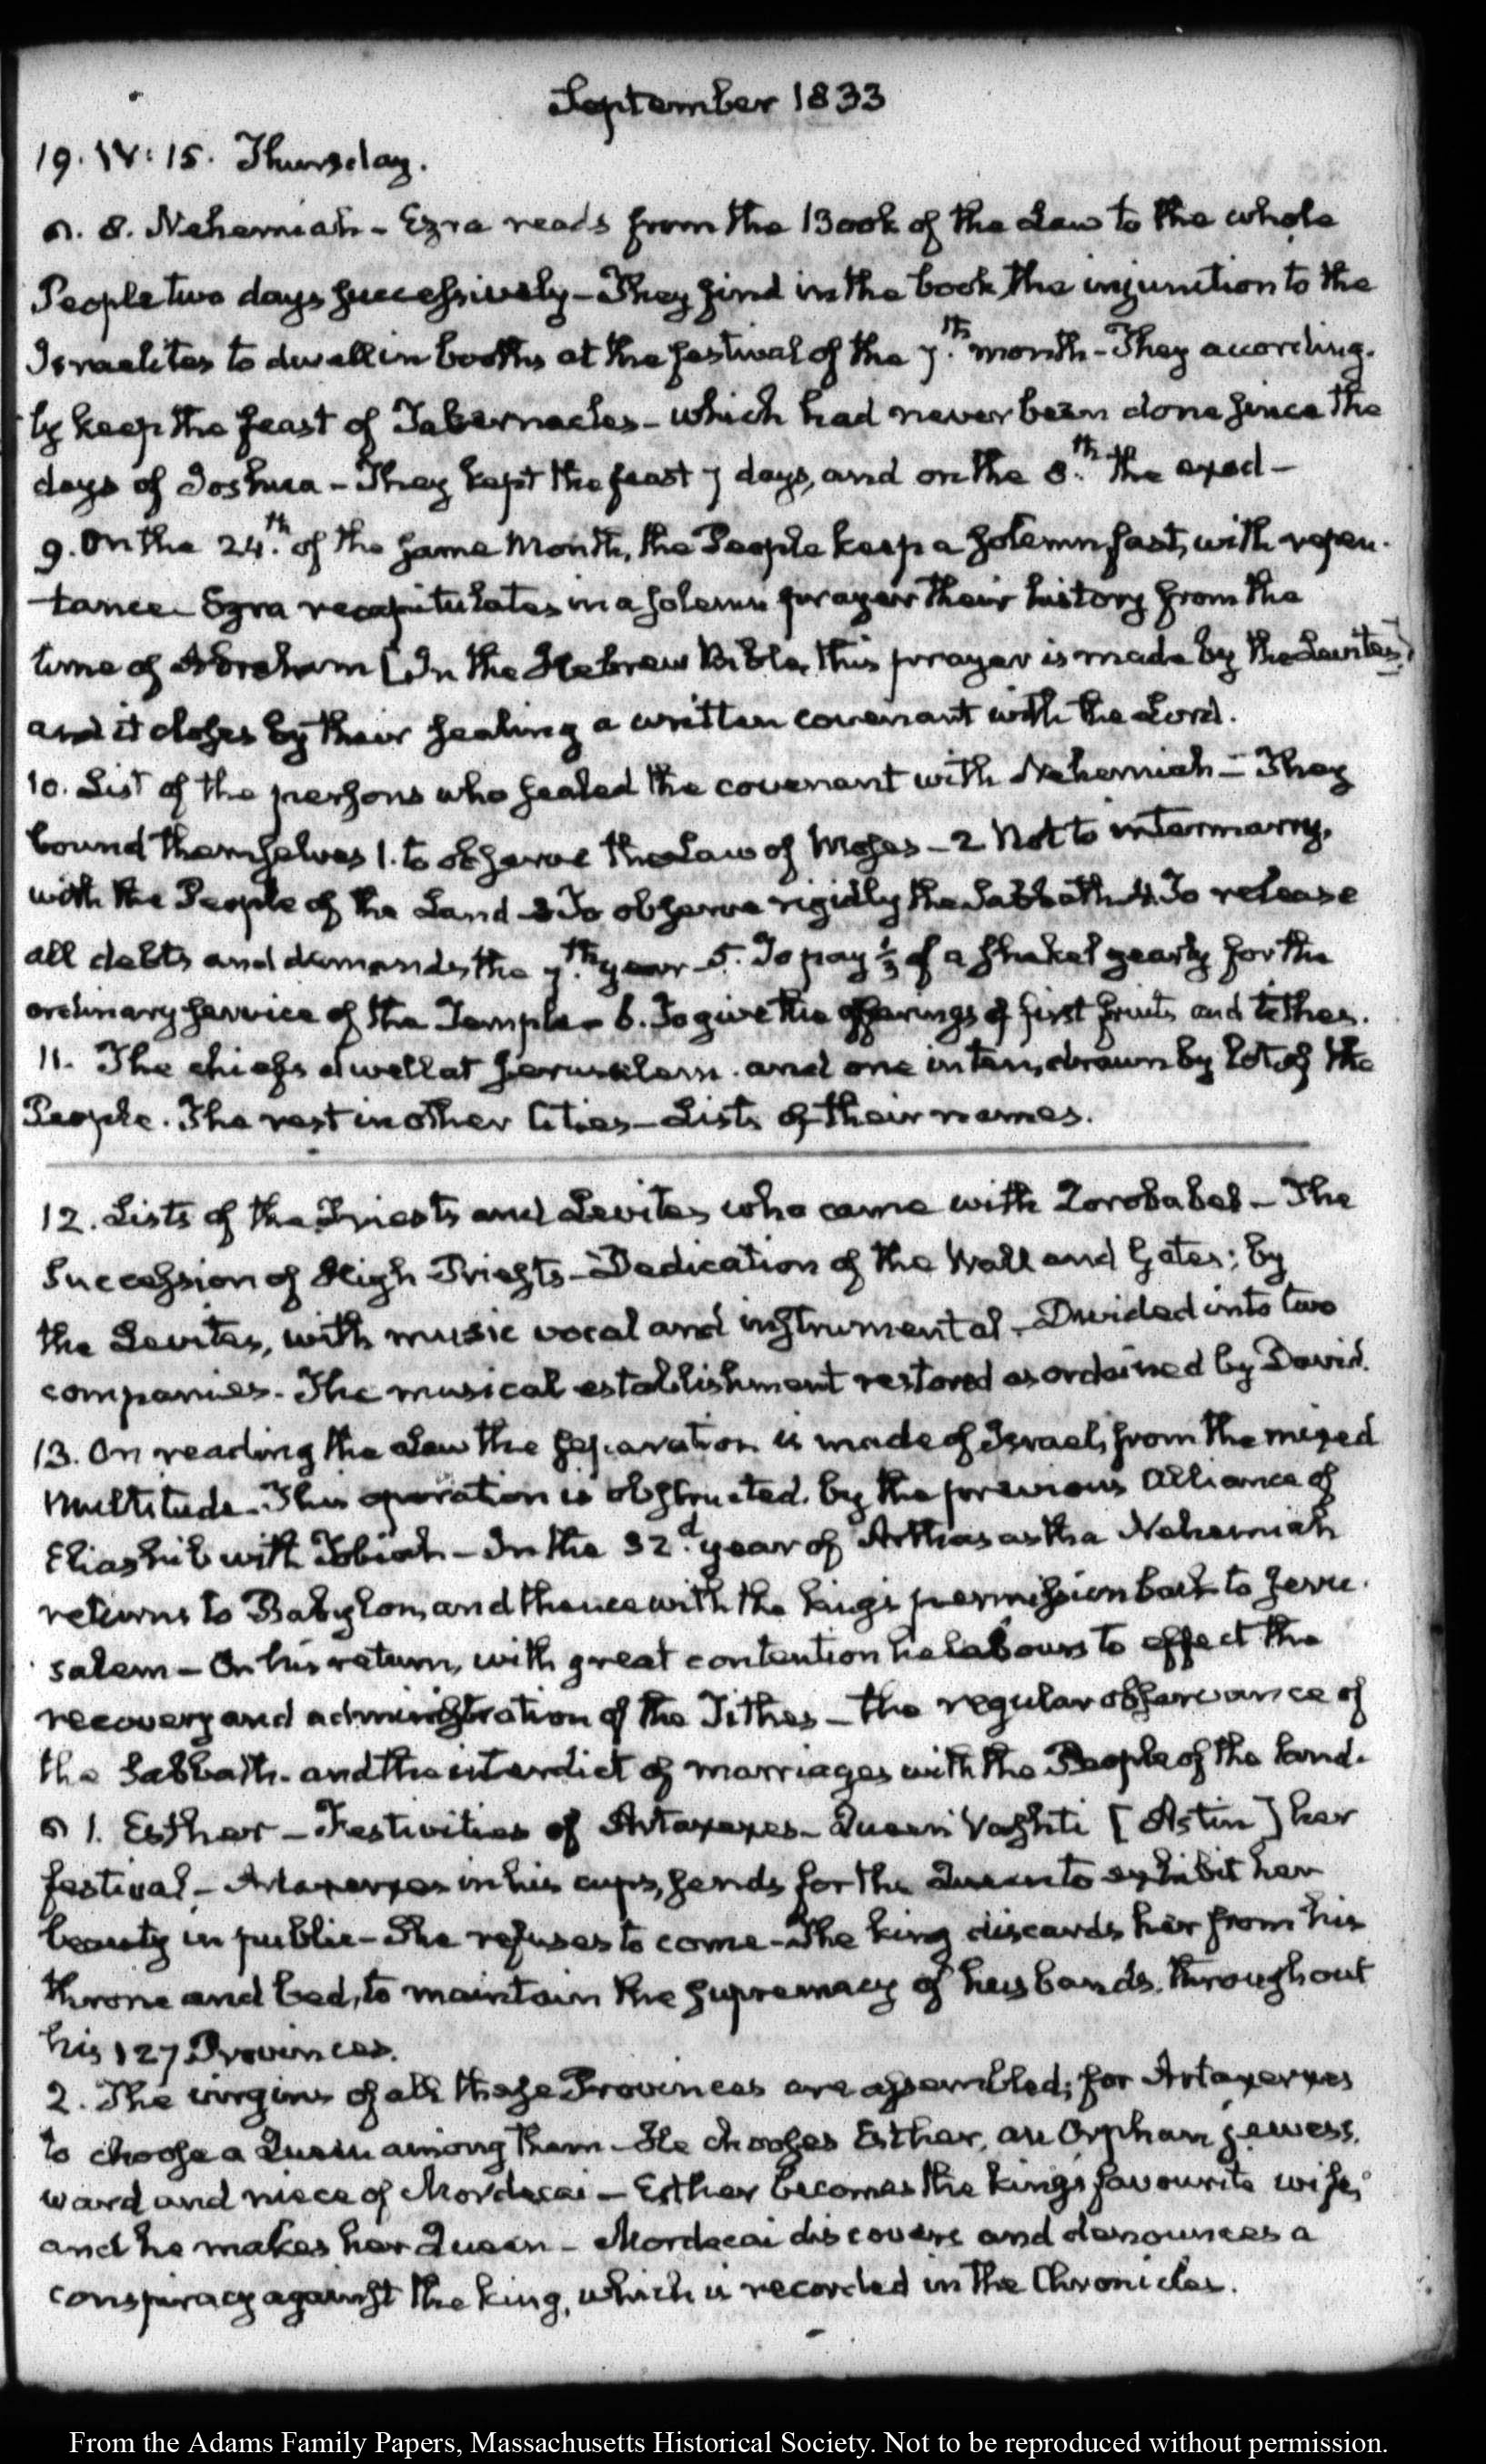 September 1833
19. IV: 15. Thursday.
8. Nehemiah - Ezra reads from the Book of the Law to the whole
People two days successively - They find in the book, the injunction to the
Israelites to dwell in booths at the festival of the 7th. month - They according-
ly keep the feast of Tabernacles - which had never been done since the
days of Joshua - They kept the feast 7 days, and on the 8th. the exod -
9. On the 24th. of the same Month, the People keep a solemn fast, with repen-
tance - Ezra recapitulates in a solemn prayer their history from the
time of Abraham [In the Hebrew Bible, this prayer is made by the Levites]
and it closes by their sealing a written covenant with the Lord.
10. List of the persons who sealed the covenant with Nehemiah - They
bound themselves 1. to observe the Law of Moses - 2 Not to intermarry,
with the People of the Land - 3 To observe rigidly the Sabbath - 4. To release
all debts and demands, the 7th. year - 5. To pay ⅓ of a shekel yearly for the
ordinary service of the Temple - 6. To give the offerings of first fruits and tithes.
11. The chiefs dwell at Jerusalem. and one in ten, drawn by lot of the
People. The rest in other Cities - Lists of their names.
12. Lists of the Priests and Levites who came with Zorobabel - The
Succession of High Priests - Dedication of the Wall and Gates; by
the Levites, with music vocal and instrumental - Divided into two
companies - The musical establishment restored as ordained by David.
13. On reading the Law the separation is made of Israel, from the mixed
Multitude - This operation is obstructed by the previous Alliance of
Eliashib with Tobiah - In the 32d. year of Arthasastha Nehemiah
returns to Babylon, and thence with the kings permission back to Jeru-
salem - On his return, with great contention he labours to effect the
recovery and administration of the Tithes - the regular observance of
the Sabbath - and the interdict of marriages with the People of the land.
1. Esther - Festivities of Artaxerxes - Queen Vashti [Astin] her
festival - Artaxerxes in his cups, sends for the Queen to exhibit her
beauty in public - She refuses to come - The king discards her from his
throne and bed, to maintain the supremacy of husbands, throughout
his 127 Provinces.
2. The virgins of all these Provinces are assembled; for Artaxerxes
to choose a Queen among them - He chooses Esther, an Orphan jewess,
ward and niece of Mordecai - Esther becomes the king's favourite wife,
and he makes her Queen - Mordecai discovers and denounces a
conspiracy against the king, which is recorded in the Chronicles.
From the Adams Family Papers, Massachusetts Historical Society. Not to be reproduced without permission.